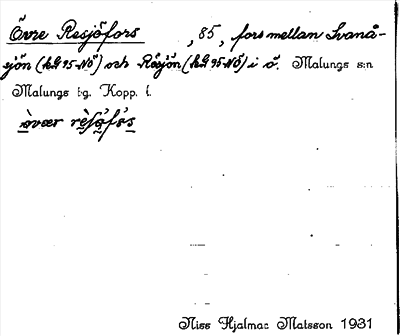 Övre Resjöfors , 85, fors mellan Svanå-
sjön (kG 95-NÖ) och Råsjön (kG 95-NÖ) i ö. Malungs s:n
Malungs tg. Kopp. l.
Niss Hjalmar Matsson 1931